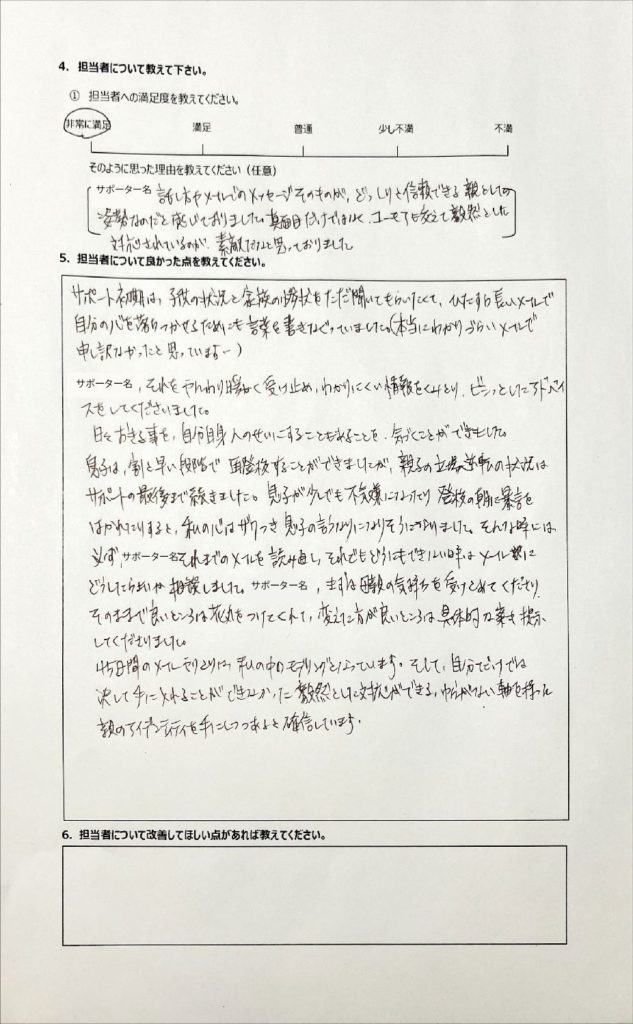 4. 担当者について教えて下さい。
① 担当者への満足度を教えてください。
非常に満足 満足 普通 少し不満 不満
そのように思った理由を教えてください（任意）
サポーター名 話し方やメールでのメッセージそのものが、どっしりと信頼できる親としての
姿勢なのだと感じておりました。真面目だけではなく、ユーモアも交えて毅然とした
対応されているのが、素敵だなと思っておりました
5. 担当者について良かった点を教えてください。
サポート初期は、子供の状況と家族の現状をただ聞いてもらいたくて、ひたすら長いメールで
自分の心を落ちつかせるためにも言葉を書きなぐっていました。(本当にわかりづらいメールで
申し訳なかったと思っています…)
サポーター名、それをやんわり暖かく受け止め、わかりにくい情報をくみとり、ビシっとしたアドバイ
スをしてくださいました。
日々おきる事を、自分自身人のせいにすることもあることを、気づくことができました。
息子は、割と早い段階で再登校することができましたが、親子の立場逆転の状況は
サポートの最後まで続きました。息子が少しでも不気嫌になったり登校の朝に暴言を
はかれたりすると、私の心はザワつき息子の言うなりになりそうになりました。そんな時には
必ず、サポーター名それまでのメールを読み返し、それでもどうにもできない時はメールに
どうしたらよいか相談しました。サポーター名、まずは母親の気持ちを受けとめてくださり
そのままで良いところは花丸をつけてくれて、変えた方が良いところは具体的な案を提示
してくださいました。
45日間のメールやりとりは、私の中のモデリングとなっています。そして、自分だけでは
決して手に入れることができなかった毅然とした対応ができる、ゆらがない軸を持った
親のアイデンティティを手にしつつあると確信しています。
6. 担当者について改善してほしい点があれば教えてください。